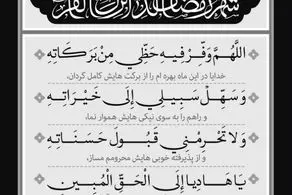 شهر رمضان الذی انزل فیه القرآن
اَللّهُمَّ وَفِّرْ فيهِ حَظّي مِنْ بَرَكاتِهِ
خدایا در این ماه بهره ام را از برکت هایش کامل گردان،
وَسَهِّلْ سَبيلي إِلى خَيْراتِهِ
و راهم را به سوی نیکی هایش هموار نما،
وَلا تَحْرِمْني قَبُولَ حَسَناتِهِ
و از پذیرفته خوبی هایش محرومم مساز،
يا هادِياً إِلَى الْحَقِّ الْمُبينِ